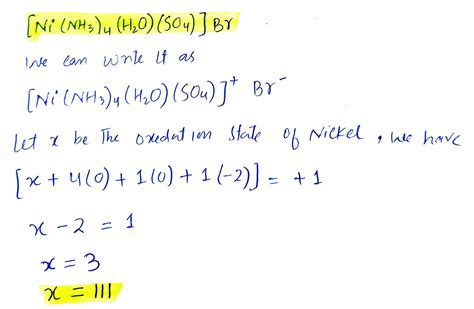 [Ni(NH₃)₄(H₂O)(SO₄)]Br
We can write it as
[Ni(NH₃)₄(H₂O)(SO₄)]⁺ Br⁻
Let x be The oxedation State of Nickel, we have
[x + 4(0) + 1(0) + 1(-2)] = +1
x - 2 = 1
x = 3
x = III